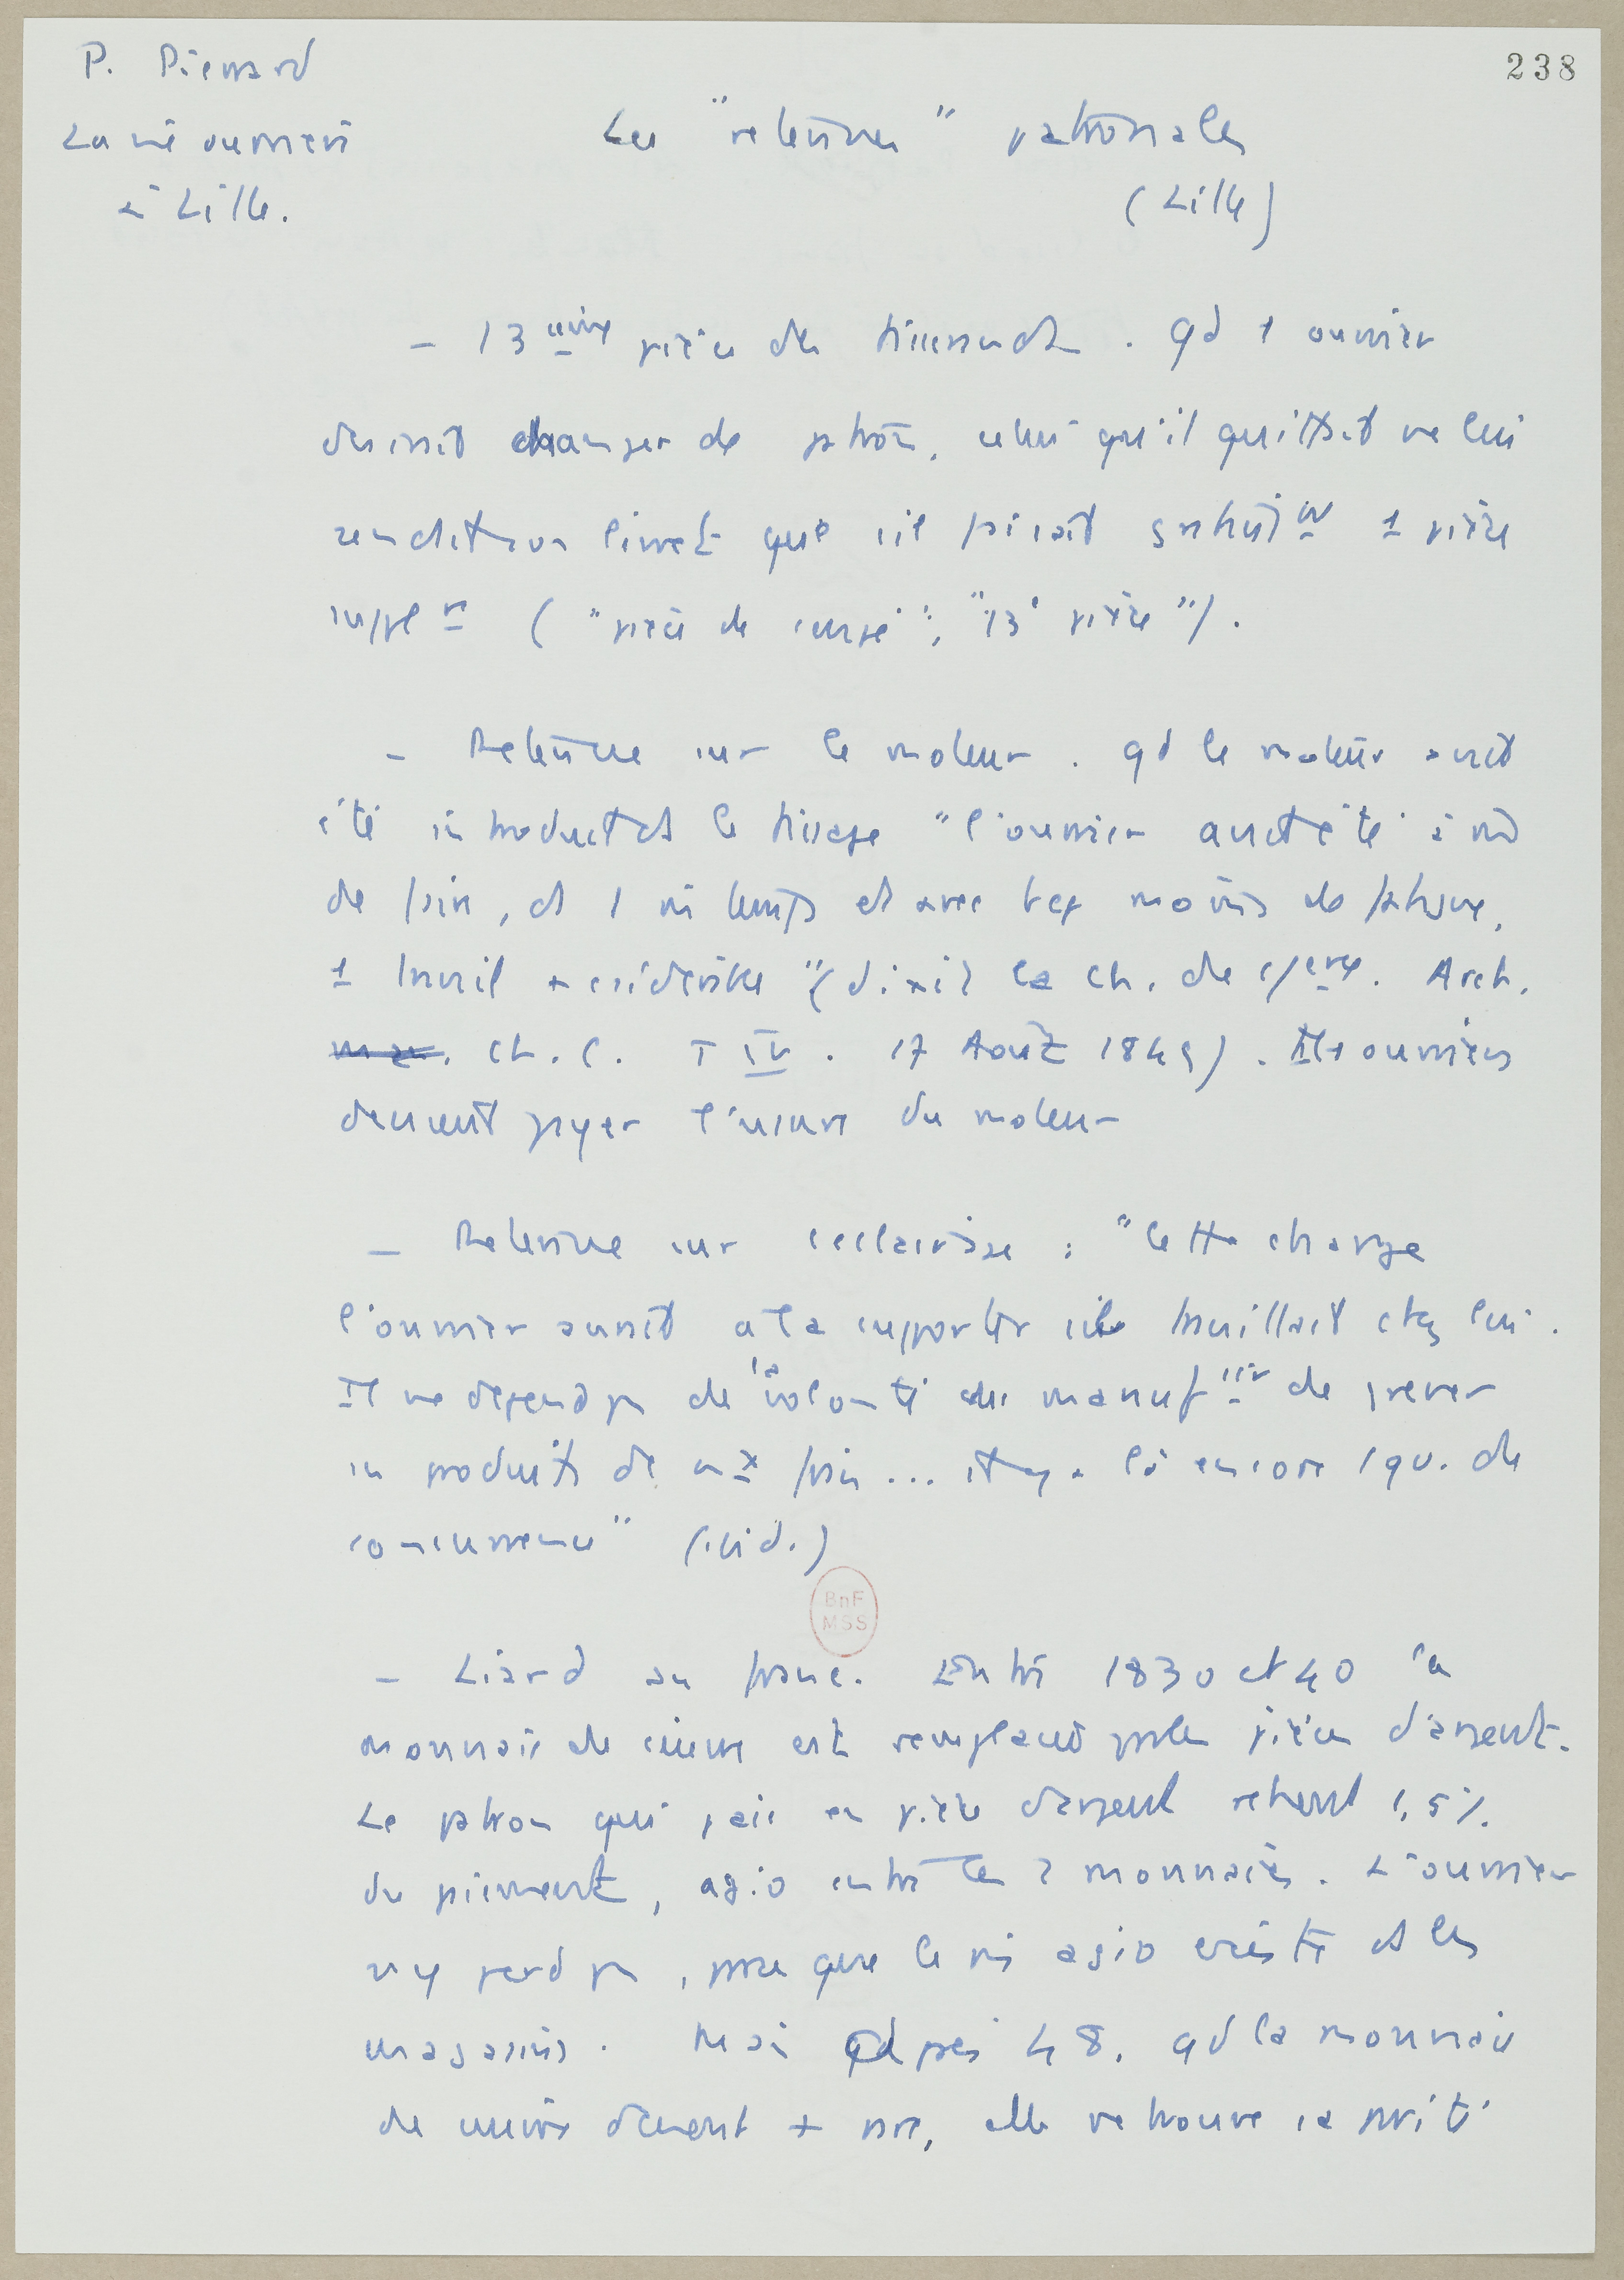 P. Pierrard
La vie ouvrière
à Lille.
238
Les "retenues" patronales
(Lille)
- 13 ième pièce des tisserands. Qd 1 ouvrier
désirait changer de patron, celui qu'il quittait ne lui
rendait son livret que s'il faisait gratuit nt 1 pièce
suppl re ("pièce de congé", "13e pièce").
- Retenue sur le moteur. Qd le moteur aurait
été introduit ds le tissage "l'ouvrier aurait été à mê
de faire, ds 1 mê temps et avec bcp moins de fatigue,
1 travail + considérable" (dixit la Ch. de c/erce. Arch.
Ch. C. T IV. 17 Août 1849). Les ouvriers
devaient payer l'usure du moteur
- Retenue sur l'éclairage : "Cette charge
l'ouvrier aurait à la supporter s'il travaillait chez lui.
Il ne dépend pas de la volonté du manuf rier de grever
ses produits de nx frais... il y a là encore 1 qu. de
concurrence" (ibid.)
BnF
MSS
- Liard au franc. Entre 1830 et 40 la
monnaie de cuivre est remplacée par les pièces d'argent.
Le patron qui paie en pièce d'argent retient 1,5%
du paiement, agio entre les 2 monnaies. L'ouvrier
n'y perd pas, parce que le mê agio existe ds les
magasins. Mais après 48, qd la monnaie
de cuivre devient + rare, elle retrouve sa parité